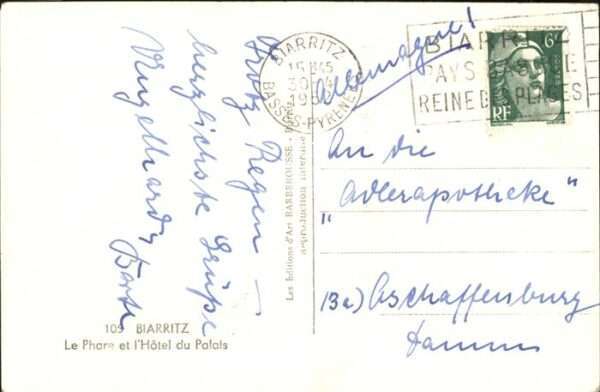 Trotz Regen –
herzlichste Grüße
Allemagne!
BIARRITZ
15H45
BASSES-PYRENEES
BIARRITZ
PAYS BASQUE
REINE DES PLAGES
6F
RF
An die
„Adlerapotheke“
Aschaffenburg
Les Editions d'Art BARBEROUSSE
reproduction interdite
105 BIARRITZ
Le Phare et l'Hôtel du Palais